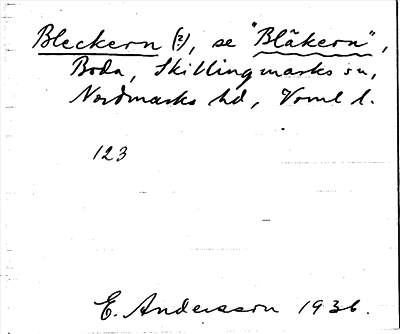 Bleckern (?), se "Blåkern",
Boda, Skillingmarks sn,
Nordmarks hd, Vrml l.
123
E. Andersson 1936.